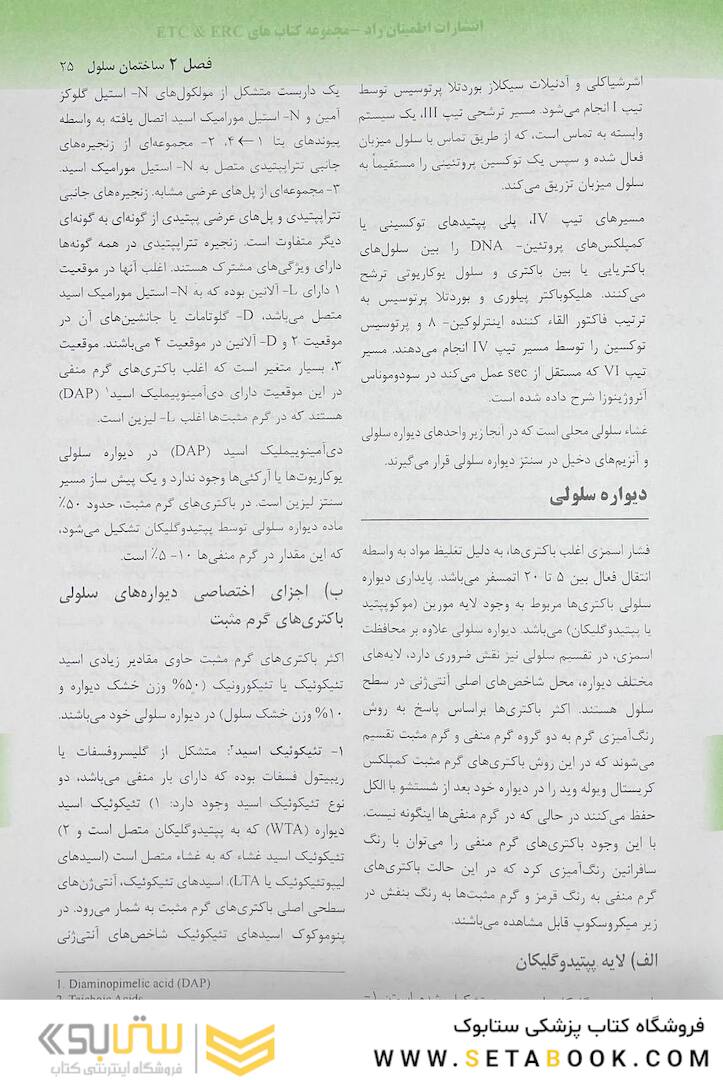 انتشارات اطمینان راد -مجموعه کتاب های ETC & ERC
فصل ۲ ساختمان سلول ۲۵
اشرشیاکلی و آدنیلات سیکلاز بوردتلا پرتوسیس توسط
تیپ I انجام می‌شود. مسیر ترشحی تیپ III، یک سیستم
وابسته به تماس است، که از طریق تماس با سلول میزبان
فعال شده و سپس یک توکسین پروتئینی را مستقیماً به
سلول میزبان تزریق می‌کند.
مسیرهای تیپ IV، پلی پپتیدهای توکسینی یا
کمپلکس‌های پروتئین- DNA را بین سلول‌های
باکتریایی یا بین باکتری و سلول یوکاریوتی ترشح
می‌کنند. هلیکوباکتر پیلوری و بوردتلا پرتوسیس به
ترتیب فاکتور القاء کننده اینترلوکین- ۸ و پرتوسیس
توکسین را توسط مسیر تیپ IV انجام می‌دهند. مسیر
تیپ VI که مستقل از sec عمل می‌کند در سودوموناس
آئروژینوزا شرح داده شده است.
غشاء سلولی محلی است که در آنجا زیر واحدهای دیواره سلولی
و آنزیم‌های دخیل در سنتز دیواره سلولی قرار می‌گیرند.
دیواره سلولی
فشار اسمزی اغلب باکتری‌ها، به دلیل تغلیظ مواد به واسطه
انتقال فعال بین ۵ تا ۲۰ اتمسفر می‌باشد. پایداری دیواره
سلولی باکتری‌ها مربوط به وجود لایه مورین (موکوپپتید
یا پپتیدوگلیکان) می‌باشد. دیواره سلولی علاوه بر محافظت
اسمزی، در تقسیم سلولی نیز نقش ضروری دارد، لایه‌های
مختلف دیواره، محل شاخص‌های اصلی آنتی‌ژنی در سطح
سلول هستند. اکثر باکتری‌ها براساس پاسخ به روش
رنگ‌آمیزی گرم به دو گروه گرم منفی و گرم مثبت تقسیم
می‌شوند که در این روش باکتری‌های گرم مثبت کمپلکس
کریستال ویوله وید را در دیواره خود بعد از شستشو با الکل
حفظ می‌کنند در حالی که در گرم منفی‌ها اینگونه نیست.
با این وجود باکتری‌های گرم منفی را می‌توان با رنگ
سافرانین رنگ‌آمیزی کرد که در این حالت باکتری‌های
گرم منفی به رنگ قرمز و گرم مثبت‌ها به رنگ بنفش در
زیر میکروسکوپ قابل مشاهده می‌باشند.
الف) لایه پپتیدوگلیکان
یک داربست متشکل از مولکول‌های N- استیل گلوکز
آمین و N- استیل مورامیک اسید اتصال یافته به واسطه
پیوندهای بتا ۱→۴، ۲- مجموعه‌ای از زنجیره‌های
جانبی تتراپپتیدی متصل به N- استیل مورامیک اسید.
۳- مجموعه‌ای از پل‌های عرضی مشابه. زنجیره‌های جانبی
تتراپپتیدی و پل‌های عرضی پپتیدی از گونه‌ای به گونه‌ای
دیگر متفاوت است. زنجیره تتراپپتیدی در همه گونه‌ها
دارای ویژگی‌های مشترک هستند. اغلب آنها در موقعیت
۱ دارای L- آلانین بوده که به N- استیل مورامیک اسید
متصل می‌باشد، D- گلوتامات یا جانشین‌های آن در
موقعیت ۲ و D- آلانین در موقعیت ۴ می‌باشند. موقعیت
۳، بسیار متغیر است که اغلب باکتری‌های گرم منفی
در این موقعیت دارای دی‌آمینوپیملیک اسید۱ (DAP)
هستند که در گرم مثبت‌ها اغلب L- لیزین است.
دی‌آمینوپیملیک اسید (DAP) در دیواره سلولی
یوکاریوت‌ها یا آرکئی‌ها وجود ندارد و یک پیش ساز مسیر
سنتز لیزین است. در باکتری‌های گرم مثبت، حدود ۵۰٪
ماده دیواره سلولی توسط پپتیدوگلیکان تشکیل می‌شود،
که این مقدار در گرم منفی‌ها ۱۰- ۵٪ است.
ب) اجزای اختصاصی دیواره‌های سلولی
باکتری‌های گرم مثبت
اکثر باکتری‌های گرم مثبت حاوی مقادیر زیادی اسید
تئیکوئیک یا تئیکورونیک (۵۰% وزن خشک دیواره و
۱۰% وزن خشک سلول) در دیواره سلولی خود می‌باشند.
۱- تئیکوئیک اسید۲: متشکل از گلیسروفسفات یا
ریبیتول فسفات بوده که دارای بار منفی می‌باشد، دو
نوع تئیکوئیک اسید وجود دارد: ۱) تئیکوئیک اسید
دیواره (WTA) که به پپتیدوگلیکان متصل است و ۲)
تئیکوئیک اسید غشاء که به غشاء متصل است (اسیدهای
لیپوتئیکوئیک یا LTA). اسیدهای تئیکوئیک، آنتی‌ژن‌های
سطحی اصلی باکتری‌های گرم مثبت به شمار می‌رود. در
پنوموکوک اسیدهای تئیکوئیک شاخص‌های آنتی‌ژنی
1. Diaminopimelic acid (DAP)
2. Teichoic Acids
فروشگاه کتاب پزشکی ستابوک
WWW.SETABOOK.COM
ستابوک
فروشگاه اینترنتی کتاب